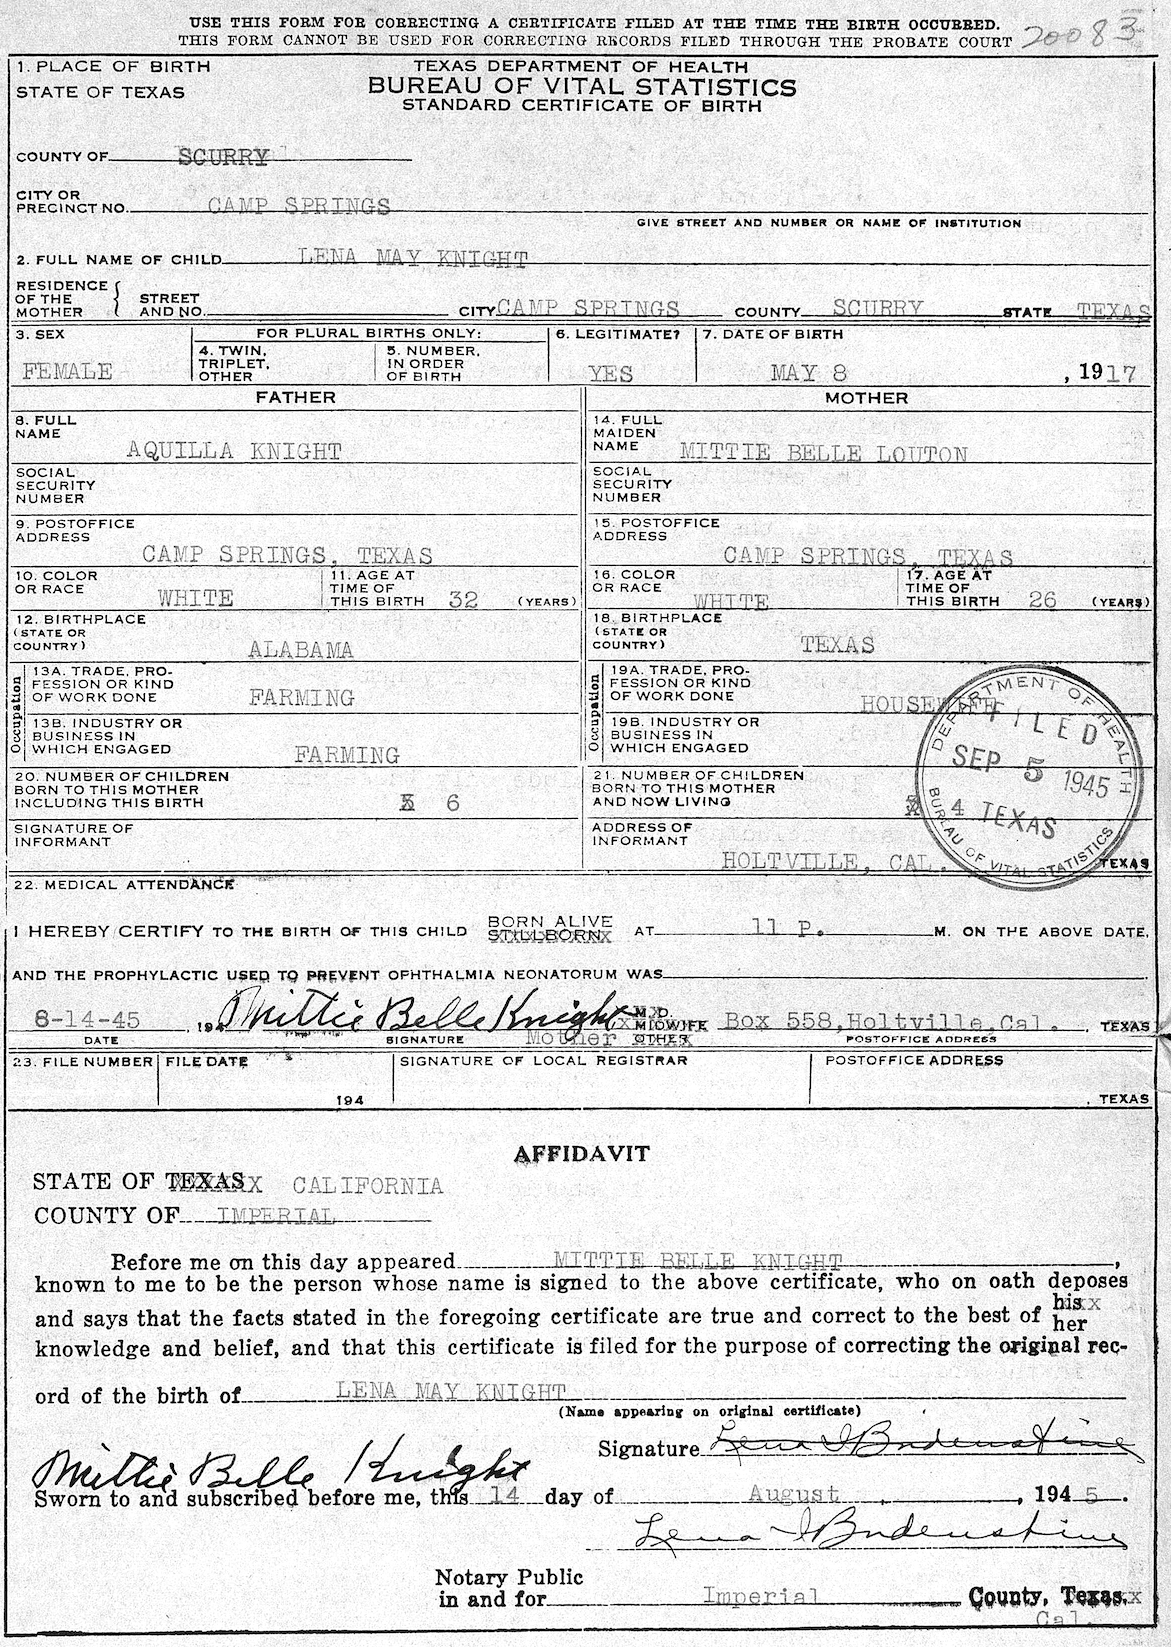 USE THIS FORM FOR CORRECTING A CERTIFICATE FILED AT THE TIME THE BIRTH OCCURRED.
THIS FORM CANNOT BE USED FOR CORRECTING RECORDS FILED THROUGH THE PROBATE COURT 20083
1. PLACE OF BIRTH
STATE OF TEXAS
TEXAS DEPARTMENT OF HEALTH
BUREAU OF VITAL STATISTICS
STANDARD CERTIFICATE OF BIRTH
COUNTY OF SCURRY
CITY OR
PRECINCT NO. CAMP SPRINGS
GIVE STREET AND NUMBER OR NAME OF INSTITUTION
2. FULL NAME OF CHILD LENA MAY KNIGHT
RESIDENCE
OF THE
MOTHER
STREET
AND NO. CITY CAMP SPRINGS COUNTY SCURRY STATE TEXAS
3. SEX
FEMALE
FOR PLURAL BIRTHS ONLY:
4. TWIN,
TRIPLET,
OTHER
5. NUMBER,
IN ORDER
OF BIRTH
6. LEGITIMATE?
YES
7. DATE OF BIRTH
MAY 8 , 1917
FATHER
8. FULL
NAME AQUILLA KNIGHT
SOCIAL
SECURITY
NUMBER
9. POSTOFFICE
ADDRESS
CAMP SPRINGS, TEXAS
10. COLOR
OR RACE WHITE
11. AGE AT
TIME OF
THIS BIRTH 32 (YEARS)
12. BIRTHPLACE
(STATE OR
COUNTRY) ALABAMA
Occupation
13A. TRADE, PRO-
FESSION OR KIND
OF WORK DONE FARMING
13B. INDUSTRY OR
BUSINESS IN
WHICH ENGAGED FARMING
20. NUMBER OF CHILDREN
BORN TO THIS MOTHER
INCLUDING THIS BIRTH 6
SIGNATURE OF
INFORMANT
MOTHER
14. FULL
MAIDEN
NAME MITTIE BELLE LOUTON
SOCIAL
SECURITY
NUMBER
15. POSTOFFICE
ADDRESS
CAMP SPRINGS, TEXAS
16. COLOR
OR RACE WHITE
17. AGE AT
TIME OF
THIS BIRTH 26 (YEARS)
18. BIRTHPLACE
(STATE OR
COUNTRY) TEXAS
Occupation
19A. TRADE, PRO-
FESSION OR KIND
OF WORK DONE HOUSEWIFE
19B. INDUSTRY OR
BUSINESS IN
WHICH ENGAGED
21. NUMBER OF CHILDREN
BORN TO THIS MOTHER
AND NOW LIVING 4
ADDRESS OF
INFORMANT
HOLTVILLE, CAL. TEXAS
DEPARTMENT OF HEALTH
FILED
SEP 5 1945
TEXAS
BUREAU OF VITAL STATISTICS
22. MEDICAL ATTENDANCE
I HEREBY CERTIFY TO THE BIRTH OF THIS CHILD BORN ALIVE
STILLBORN AT 11 P. M. ON THE ABOVE DATE,
AND THE PROPHYLACTIC USED TO PREVENT OPHTHALMIA NEONATORUM WAS
8-14-45 , 194 Mittie Belle Knight M.D.
MIDWIFE Box 558,Holtville,Cal. , TEXAS
DATE SIGNATURE Mother OTHER POSTOFFICE ADDRESS
23. FILE NUMBER
FILE DATE
194
SIGNATURE OF LOCAL REGISTRAR
POSTOFFICE ADDRESS
, TEXAS
AFFIDAVIT
STATE OF TEXAS CALIFORNIA
COUNTY OF IMPERIAL
Before me on this day appeared MITTIE BELLE KNIGHT,
known to me to be the person whose name is signed to the above certificate, who on oath deposes
and says that the facts stated in the foregoing certificate are true and correct to the best of his
her
knowledge and belief, and that this certificate is filed for the purpose of correcting the original rec-
ord of the birth of LENA MAY KNIGHT
(Name appearing on original certificate)
Signature Lena I Bodenstine
Mittie Belle Knight
Sworn to and subscribed before me, this 14 day of August , 1945.
Lena I Bodenstine
Notary Public
in and for Imperial County, Texas.
Cal.